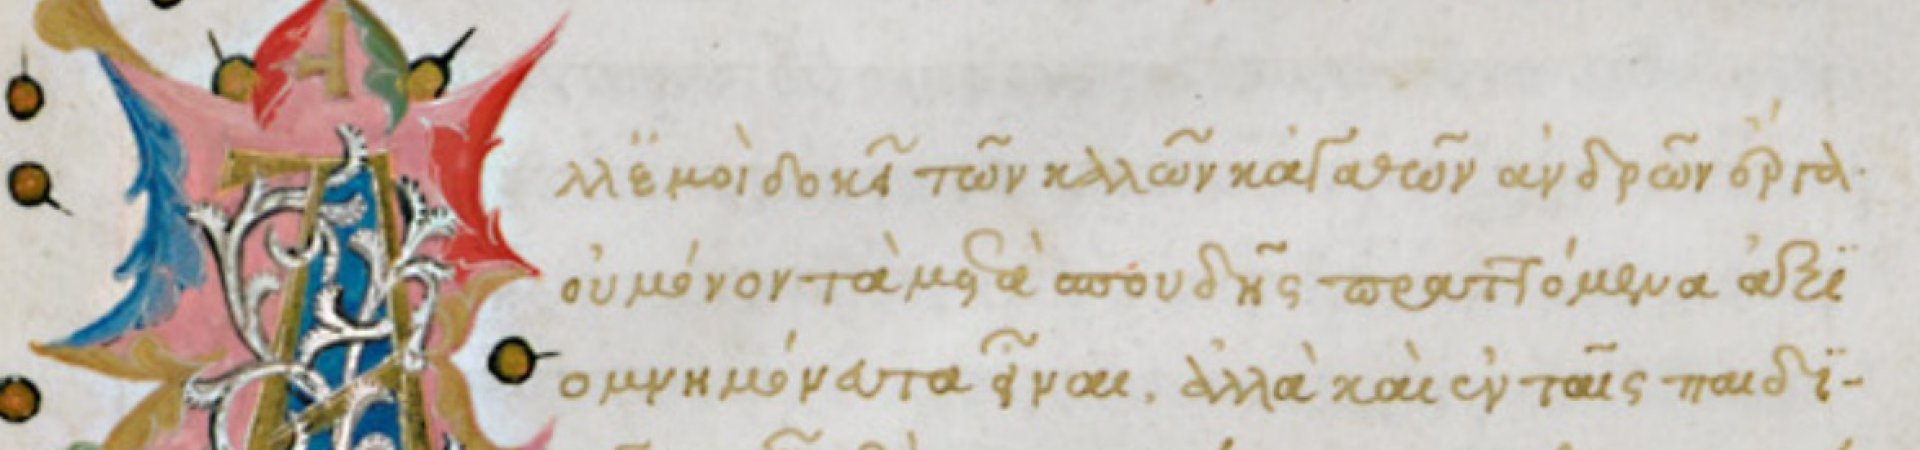 Ἀλλ' ἔμοὶ δοκεῖ τῶν καλῶν κἀγαθῶν ἀνδρῶν ἔργα
οὐ μόνον τὰ μετὰ σπουδῆς πραττόμενα ἀξϊ
ομνημόνευτα εἶναι, ἀλλὰ καὶ ἐν ταῖς παιδϊ-